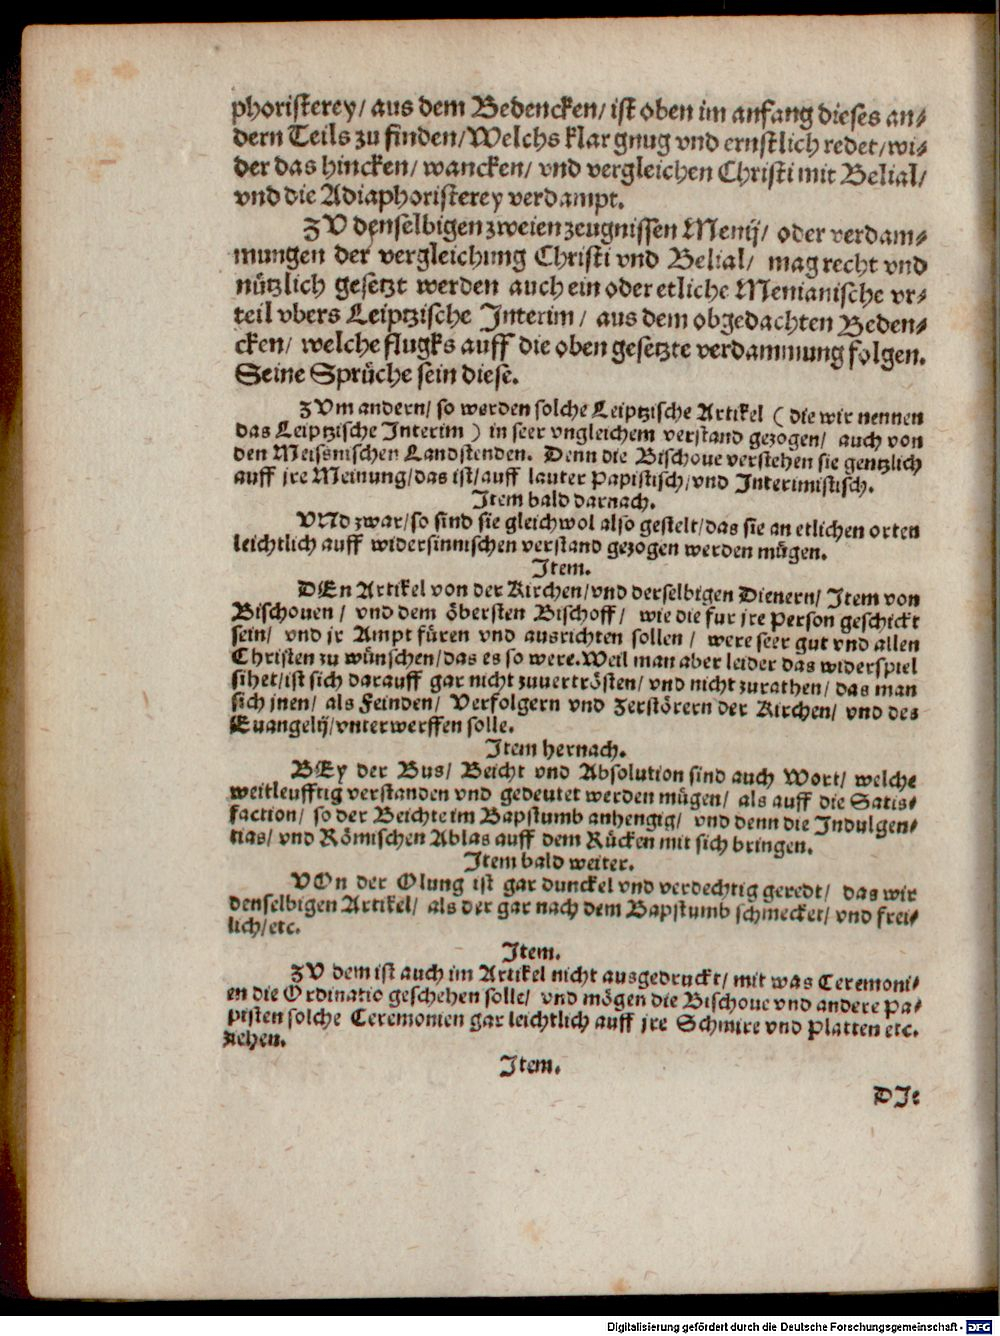 phoristerey/ aus dem Bedencken/ ist oben im anfang dieses an/
dern Teils zu finden/Welchs klar gnug vnd ernstlich redet/wi/
der das hincken/ wancken/ vnd vergleichen Christi mit Belial/
vnd die Adiaphoristerey verdampt.
ZV denselbigen zweien zeugnissen Menij/ oder verdam/
mungen der vergleichung Christi vnd Belial/ mag recht vnd
nützlich gesetzt werden auch ein oder etliche Menianische vr/
teil vbers Leiptzische Interim/ aus dem obgedachten Beden/
cken/ welche flugks auff die oben gesetzte verdammung folgen.
Seine Sprüche sein diese.
ZVm andern/ so werden solche Leiptzische Artikel ( die wir nennen
das Leiptzische Interim ) in seer vngleichem verstand gezogen/ auch von
den Meissnischen Landstenden. Denn die Bischoue verstehen sie gentzlich
auff jre Meinung/das ist/auff lauter Papistisch/vnd Interimistisch.
Item bald darnach.
VNd zwar/so sind sie gleichwol also gestelt/das sie an etlichen orten
leichtlich auff widersinnischen verstand gezogen werden mügen.
Item.
DEn Artikel von der Kirchen/vnd derselbigen Dienern/ Item von
Bischouen/ vnd dem öbersten Bischoff/ wie die fur jre Person geschickt
sein/ vnd jr Ampt füren vnd ausrichten sollen/ were seer gut vnd allen
Christen zu wünschen/das es so were.Weil man aber leider das widerspiel
sihet/ist sich darauff gar nicht zuuertrösten/ vnd nicht zurathen/ das man
sich jnen/ als Feinden/ Verfolgern vnd Zerstörern der Kirchen/ vnd des
Euangelij/vnterwerffen solle.
Item hernach.
BEy der Bus/ Beicht vnd Absolution sind auch Wort/ welche
weitleufftig verstanden vnd gedeutet werden mügen/ als auff die Satis/
faction/ so der Beichte im Bapstumb anhengig/ vnd denn die Indulgen/
tias/ vnd Römischen Ablas auff dem Rücken mit sich bringen.
Item bald weiter.
VOn der Olung ist gar dunckel vnd verdechtig geredt/ das wir
denselbigen Artikel/ als der gar nach dem Bapstumb schmecket/ vnd frei/
lich/etc.
Item.
ZV dem ist auch im Artikel nicht ausgedruckt/ mit was Ceremoni/
en die Ordinatio geschehen solle/ vnd mögen die Bischoue vnd andere Pa/
pisten solche Ceremonien gar leichtlich auff jre Schmire vnd Platten etc.
ziehen.
Item.
DIe
Digitalisierung gefördert durch die Deutsche Forschungsgemeinschaft - DFG